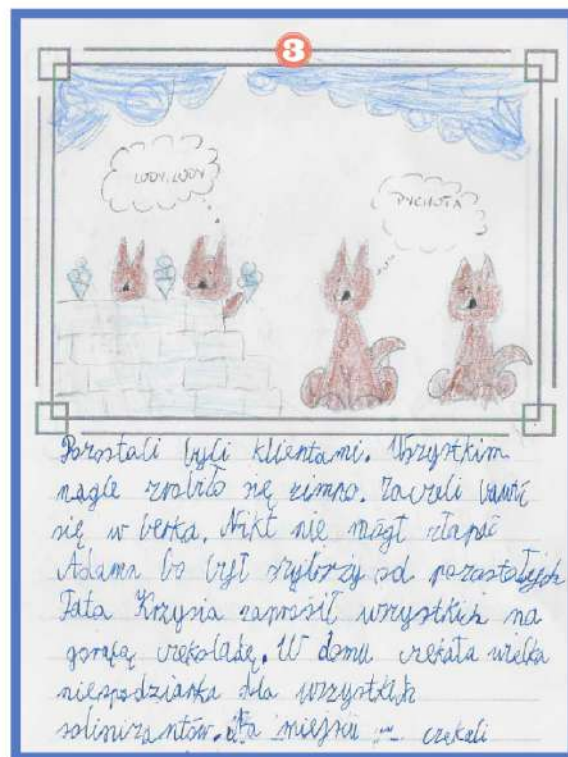 3
LODY, LODY
PYCHOTA
Pozostali byli klientami. Wszystkim
nagle zrobiło się zimno. Zaczeli bawić
się w berka. Nikt nie mógł złapać
Adama bo był szybrzy od pozostałych
Tata Krzysia zaprosił wszystkich na
gorącą czekoladę. W domu czekała wielka
niespodzianka dla wszystkich
solinizantów. Na miejscu czekali